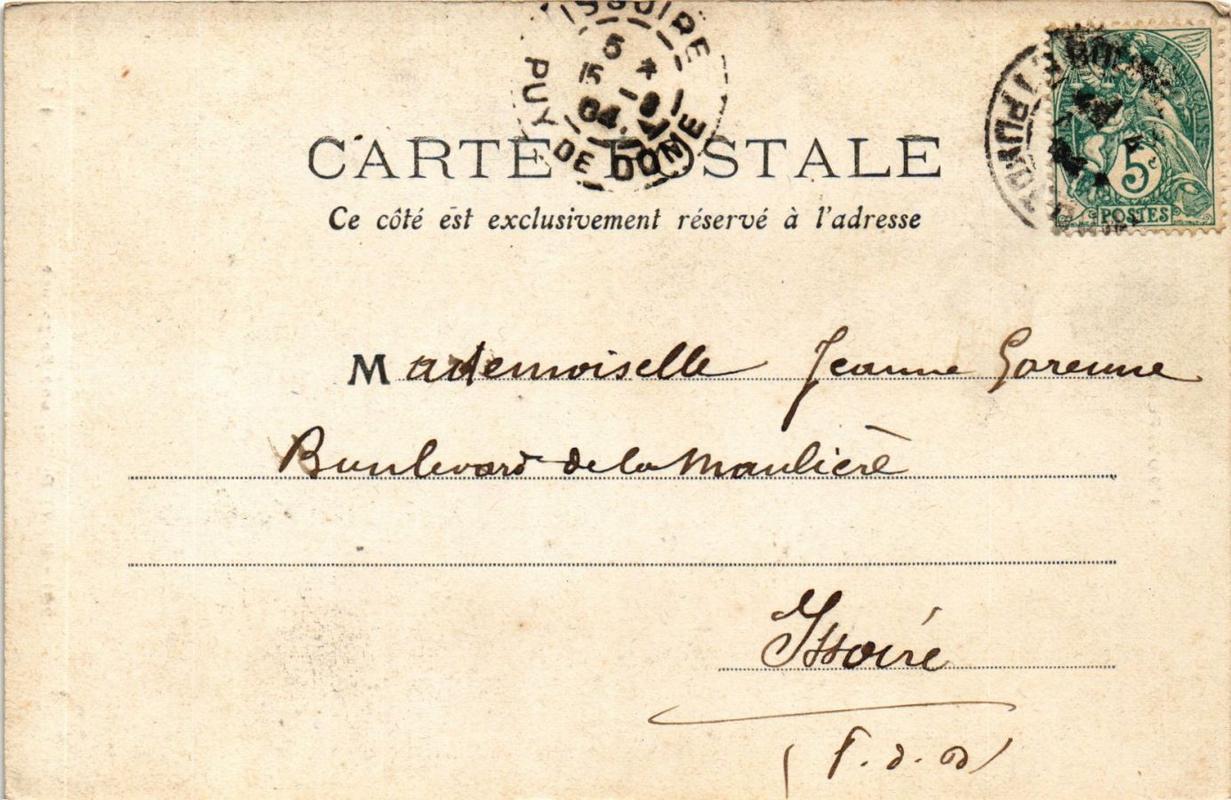 ISSOIRE
5 4
15
04
PUY DE DOME
5c
POSTES
CARTE POSTALE
Ce côté est exclusivement réservé à l'adresse
Mademoiselle Jeanne Garenne
Boulevard de la Manlière
Issoire
(P. d. D)